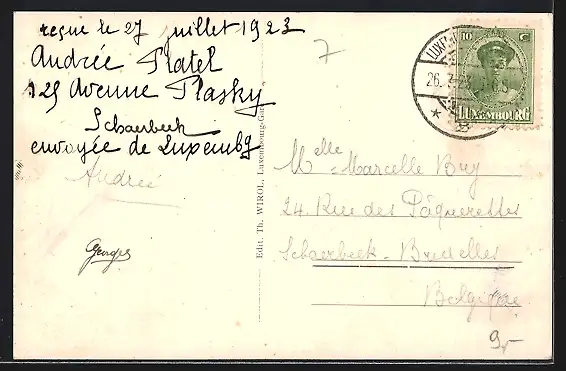 reçue le 27 juillet 1923
Andrée Platel
125 Avenue Plasky
Schaerbeek
envoyée de Luxembg
Andrée
Georges
Edit. Th. WIROL, Luxembourg-Gare
7
LUXEMB
26. 7. 23
10 C
LUXEMBOURG
Melle Marcelle Buy
24 Rue des Pâquerettes
Schaerbeek - Bruxelles
Belgique
9,-